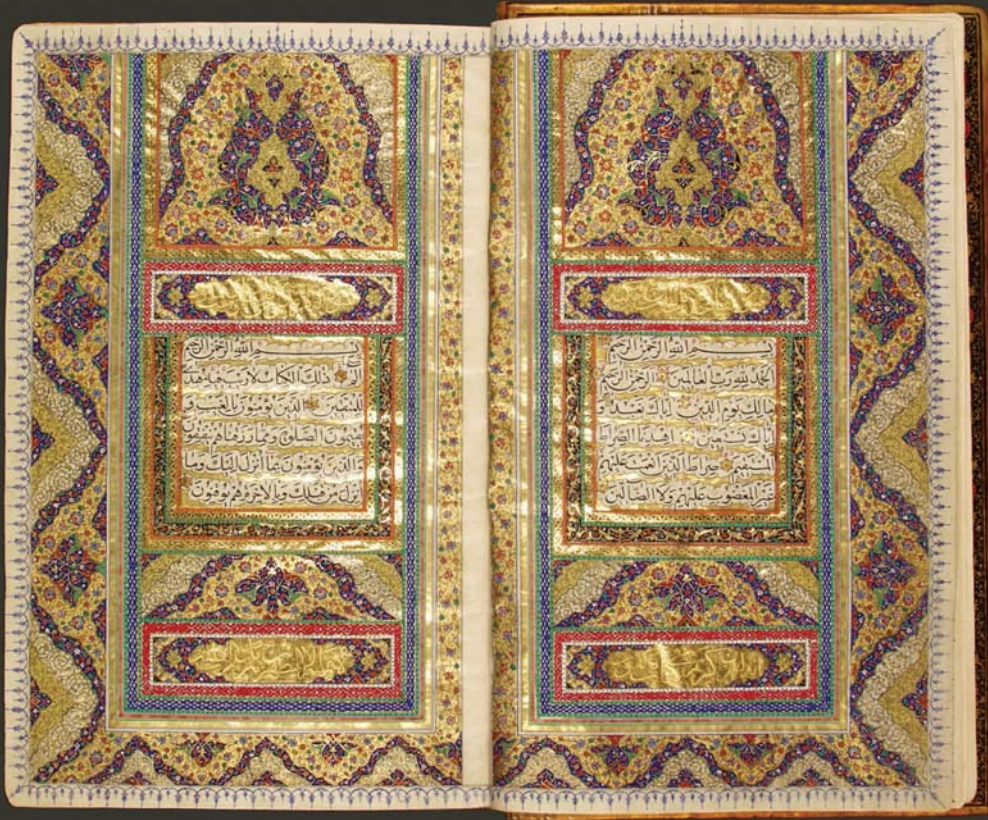 بسم الله الرحمن الرحيم
الحمد لله رب العالمين الرحمن الرحيم
مالك يوم الدين اياك نعبد و
اياك نستعين اهدنا الصراط
المستقيم صراط الذين انعمت عليهم
غير المغضوب عليهم ولا الضالين
بسم الله الرحمن الرحيم
الم ذلك الكتاب لا ريب فيه هدى
للمتقين الذين يؤمنون بالغيب و
يقيمون الصلوة ومما رزقناهم ينفقون
والذين يؤمنون بما انزل اليك وما
انزل من قبلك وبالاخرة هم يوقنون